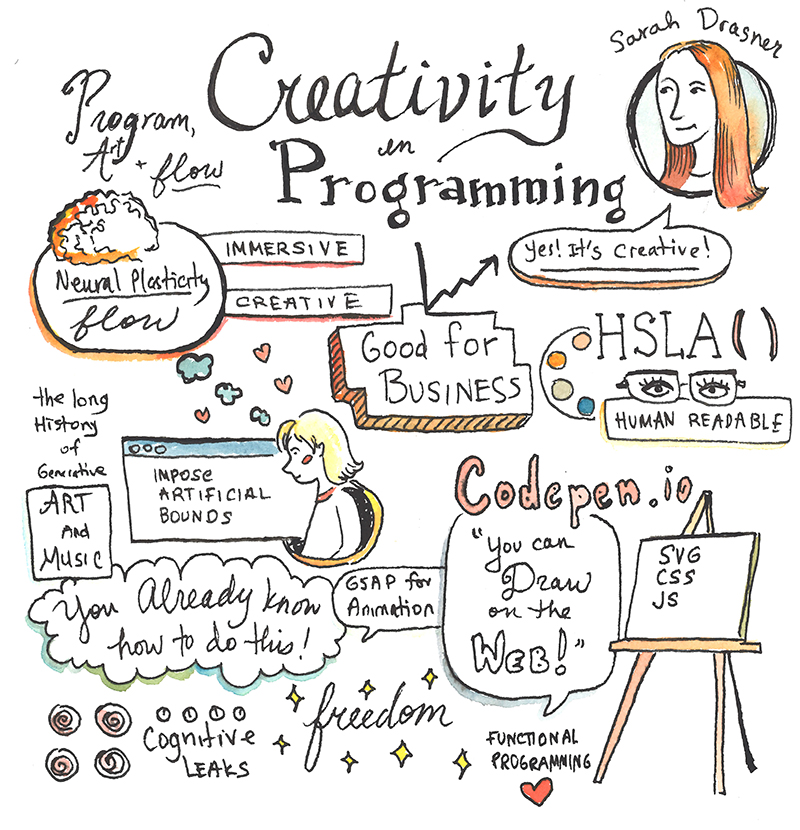 Sarah Drasner
Creativity
in
Programming
Program,
Art + flow
Neural Plasticity
flow
IMMERSIVE
CREATIVE
Yes! It's Creative!
Good for
BUSINESS
HSLA()
HUMAN READABLE
the long
History
of
Generative
ART
AND
MUSIC
IMPOSE
ARTIFICIAL
BOUNDS
You Already know
how to do this!
GSAP for
Animation
Codepen.io
"You can
Draw
on the
WEB!"
SVG
CSS
JS
Cognitive
LEAKS
freedom
FUNCTIONAL
PROGRAMMING